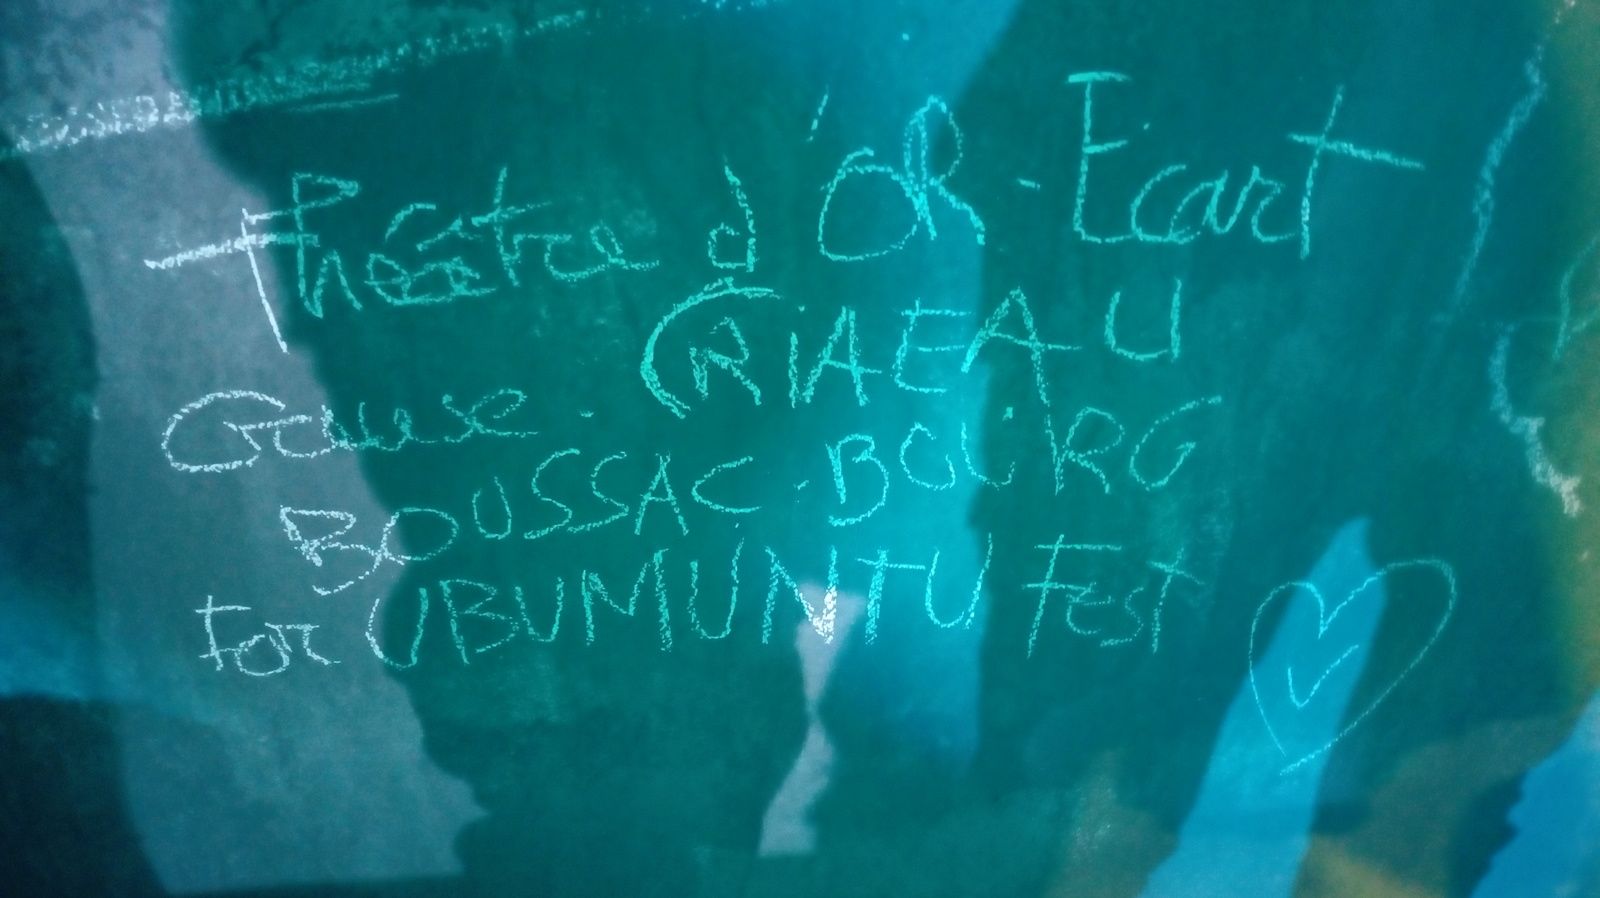 Théâtre d'OR-Ecart
Creuse. CRIAEAU
BOUSSAC-BOURG
For UBUMUNTU Fest